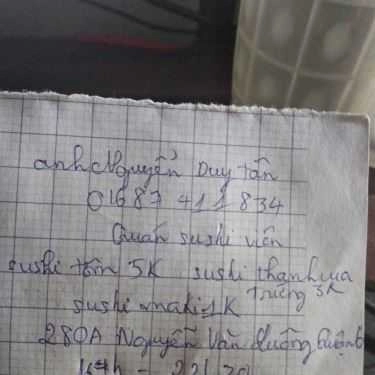 anh Nguyễn Duy Tân
01687 411 834
Quán sushi viên
sushi tôm 5K sushi thanh cua
trứng 3K
sushi maki 1K
280A Nguyễn Văn Luông Quận 6